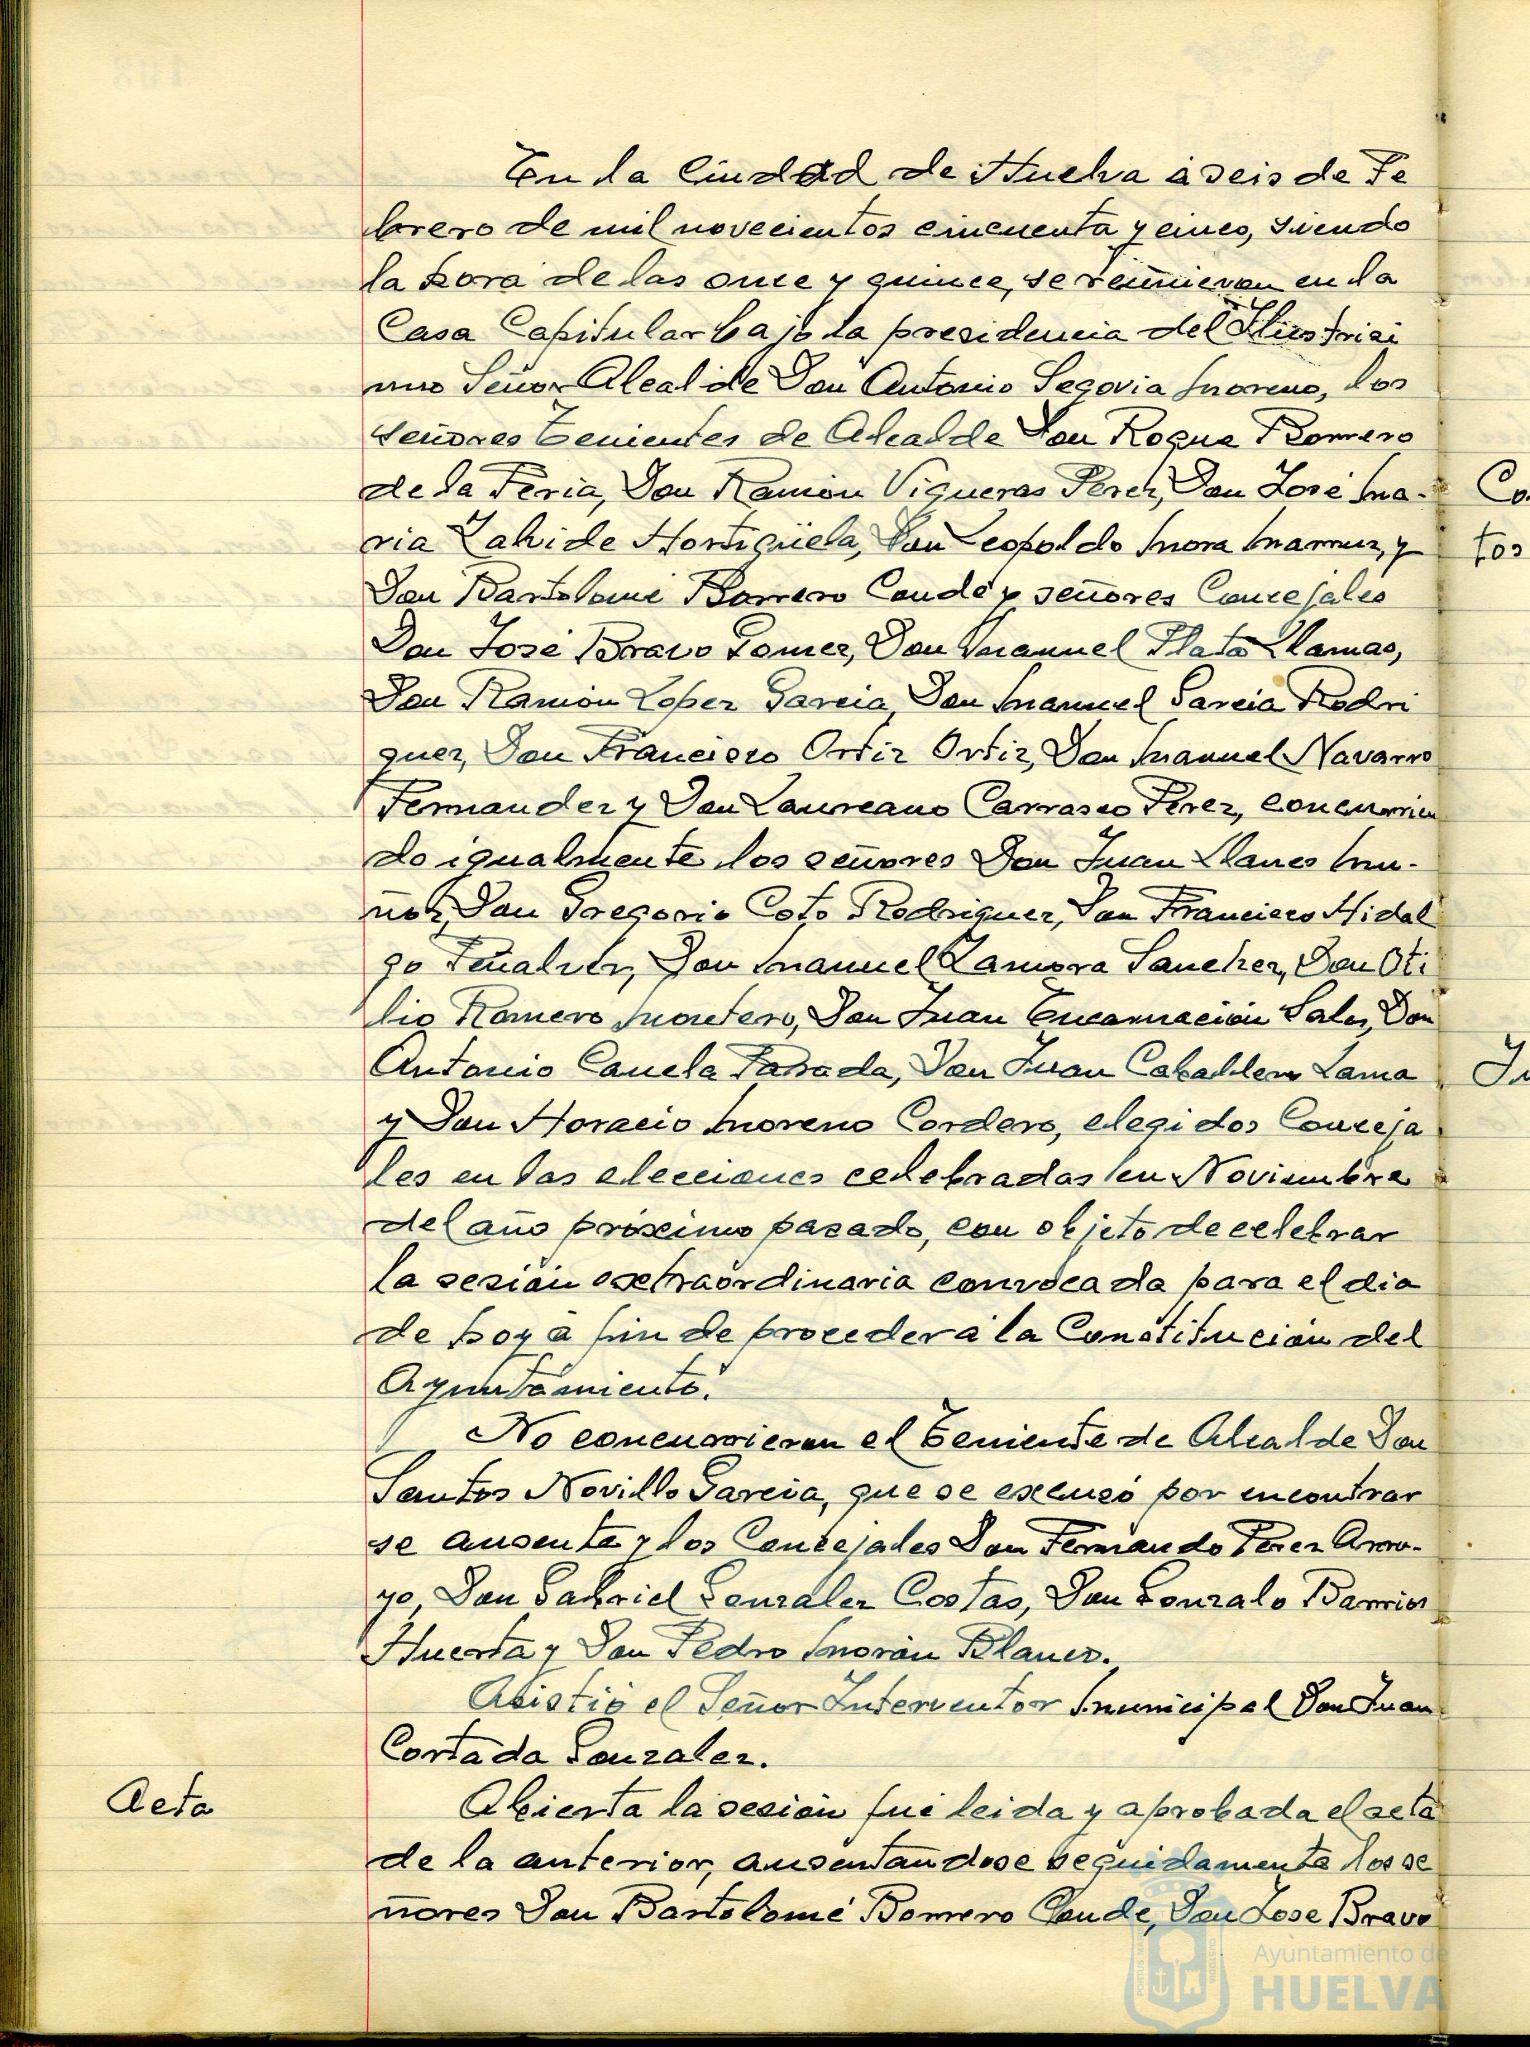 En la Ciudad de Huelva á seis de Fe
brero de mil novecientos cincuenta y cinco, siendo
la hora de las once y quince, se reunieron en la
Casa Capitular bajo la presidencia del Ilustrisi
mo Señor Alcalde Don Antonio Segovia Moreno, los
señores Tenientes de Alcalde Don Roque Romero
de la Feria, Don Ramón Vigueras Pérez, Don José Ma-
ria Zalvide Hortigüela, Don Leopoldo Mora y
Don Bartolomé Borrero Conde y señores Concejales
Don José Bravo Gomez, Don Manuel Plata Llamas,
Don Ramón Lopez Garcia, Don Manuel Garcia Rodri
guez, Don Francisco Ortiz Ortiz, Don Manuel Navarro
Fernandez y Don Laureano Carrasco Pérez, concurrien
do igualmente los señores Don Juan Llanes Mu-
ñoz, Don Gregorio Coto Rodriguez, Don Francisco Hidal
go Peñalver, Don Manuel Zamora Sanchez, Don Oti
lio Romero Montero, Don Juan Encarnación Salas, Don
Antonio Canela Parada, Don Juan Caballero Lama
y Don Horacio Moreno Cordero, elegidos Conceja
les en las elecciones celebradas en Noviembre
del año próximo pasado, con objeto de celebrar
la sesión extraordinaria convocada para el dia
de hoy á fin de proceder á la Constitución del
Ayuntamiento.
No concurrieron el Teniente de Alcalde Don
Santos Novillo Garcia, que se excusó por encontrar
se ausente y los Concejales Don Fernando Pérez Arro-
yo, Don Gabriel Gonzalez Costas, Don Gonzalo Barrios
Huerta y Don Pedro Morón Blanco.
Asistió el Señor Interventor Municipal Don Juan
Cortada Gonzalez.
Acta
Abierta la sesión fué leida y aprobada el acta
de la anterior, ausentandose seguidamente los se
ñores Don Bartolomé Borrero Conde, Don Jose Bravo
Co
tos
Ayuntamiento de
HUELVA